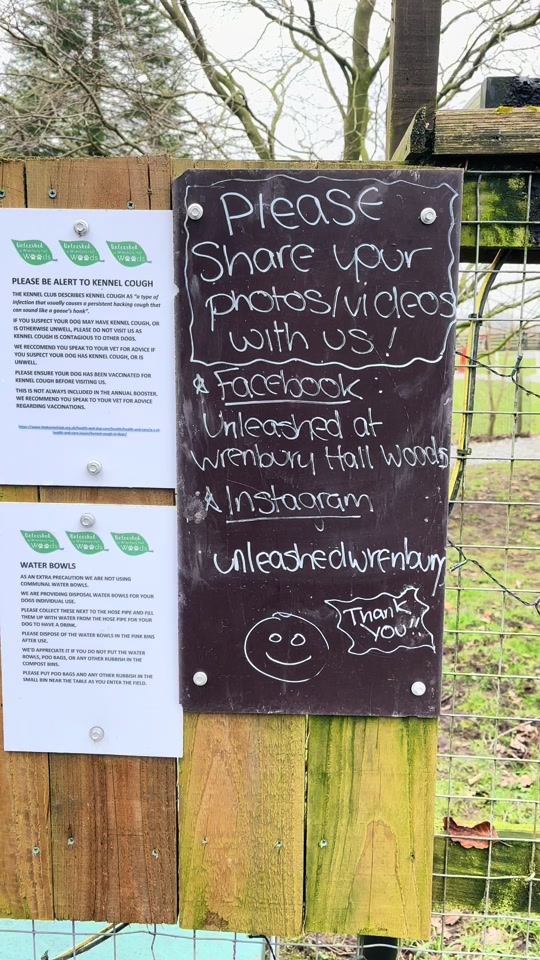 Unleashed
Woods
Unleashed
Woods
Unleashed
Woods
PLEASE BE ALERT TO KENNEL COUGH
THE KENNEL CLUB DESCRIBES KENNEL COUGH AS "a type of
infection that usually causes a persistent hacking cough that
can sound like a goose's honk".
IF YOU SUSPECT YOUR DOG MAY HAVE KENNEL COUGH, OR
IS OTHERWISE UNWELL, PLEASE DO NOT VISIT US AS
KENNEL COUGH IS CONTAGIOUS TO OTHER DOGS.
WE RECCOMEND YOU SPEAK TO YOUR VET FOR ADVICE IF
YOU SUSPECT YOUR DOG HAS KENNEL COUGH, OR IS
UNWELL.
PLEASE ENSURE YOUR DOG HAS BEEN VACCINATED FOR
KENNEL COUGH BEFORE VISITING US.
THIS IS NOT ALWAYS INCLUDED IN THE ANNUAL BOOSTER.
WE RECOMMEND YOU SPEAK TO YOUR VET FOR ADVICE
REGARDING VACCINATIONS.
Unleashed
Woods
Unleashed
Woods
Unleashed
Woods
WATER BOWLS
AS AN EXTRA PRECAUTION WE ARE NOT USING
COMMUNAL WATER BOWLS.
WE ARE PROVIDING DISPOSAL WATER BOWLS FOR YOUR
DOGS INDIVIDUAL USE.
PLEASE COLLECT THESE NEXT TO THE HOSE PIPE AND FILL
THEM UP WITH WATER FROM THE HOSE PIPE FOR YOUR
DOG TO HAVE A DRINK.
PLEASE DISPOSE OF THE WATER BOWLS IN THE PINK BINS
AFTER USE.
WE'D APPRECIATE IT IF YOU DO NOT PUT THE WATER
BOWLS, POO BAGS, OR ANY OTHER RUBBISH IN THE
COMPOST BINS.
PLEASE PUT POO BAGS AND ANY OTHER RUBBISH IN THE
SMALL BIN NEAR THE TABLE AS YOU ENTER THE FIELD.
Please
Share your
photos/videos
with us!
Facebook:
Unleashed at
Wrenbury Hall Woods
Instagram
unleashedwrenbury
Thank
you!!